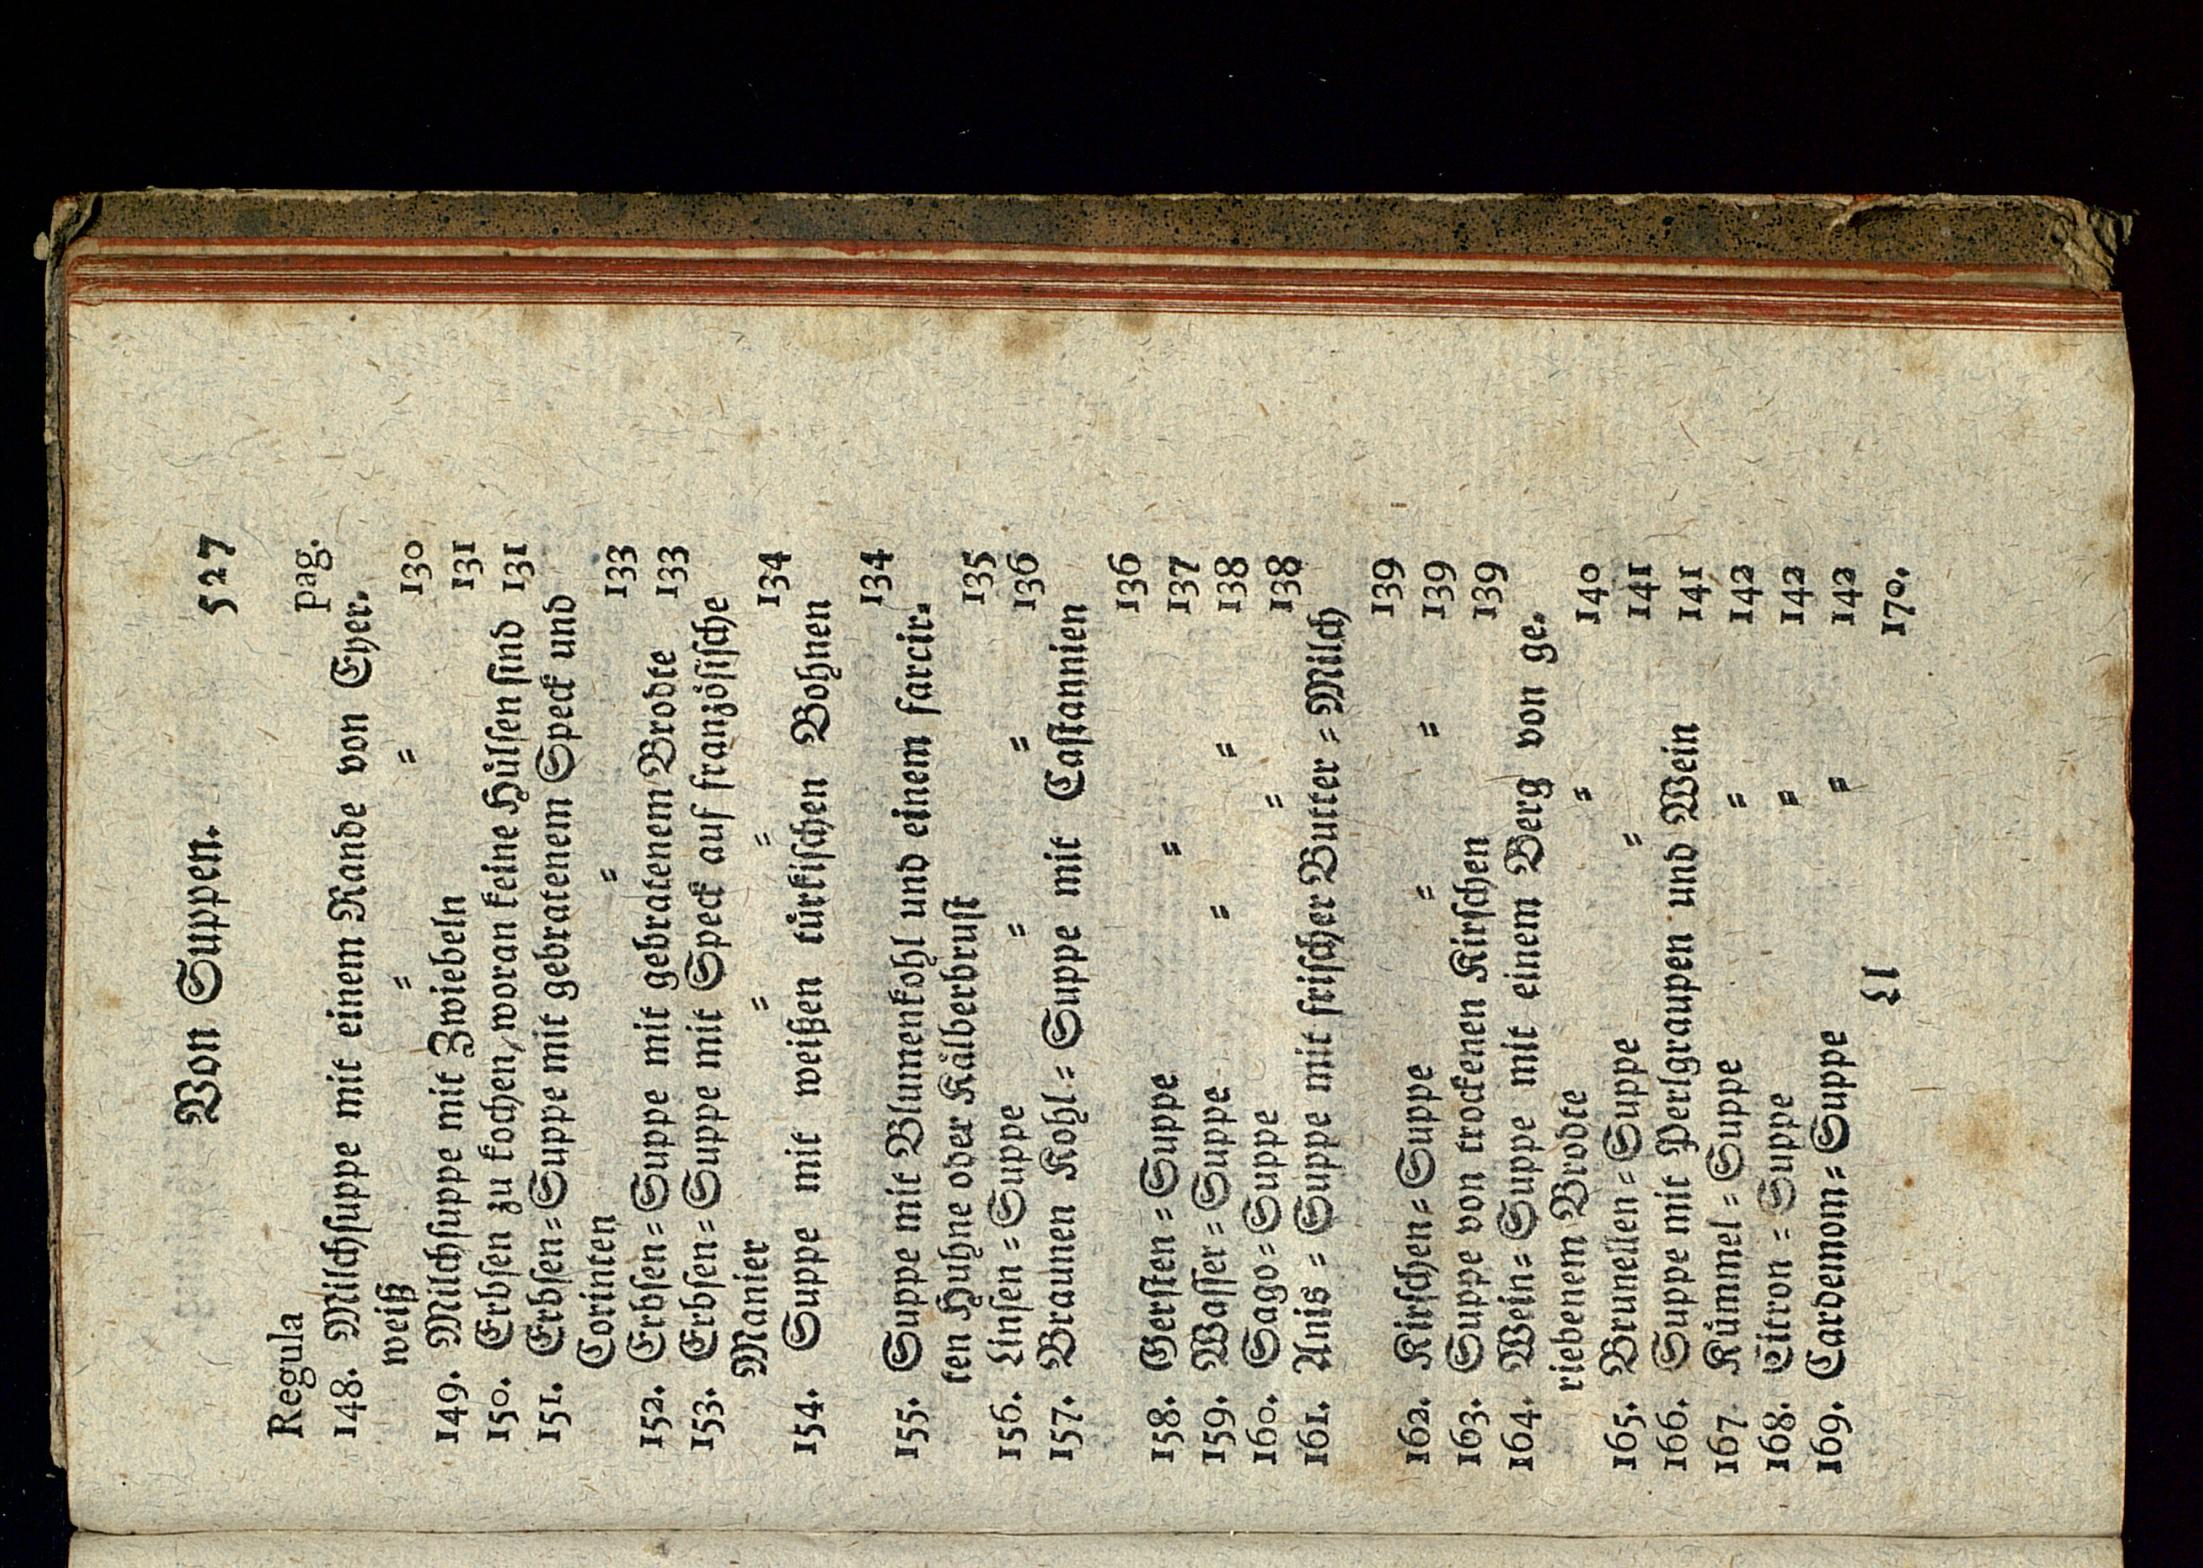 Von Suppen. 527
Regula pag.
148. Milchsuppe mit einem Rande von Eyer-
weiß = = 130
149. Milchsuppe mit Zwiebeln 131
150. Erbsen zu kochen, woran keine Hülsen sind 131
151. Erbsen=Suppe mit gebratenem Speck und
Corinten = 133
152. Erbsen=Suppe mit gebratenem Brodte 133
153. Erbsen=Suppe mit Speck auf französische
Manier = = 134
154. Suppe mit weißen türkischen Bohnen
134
155. Suppe mit Blumenkohl und einem farcir-
ten Huhne oder Kälberbrust 135
156. Linsen=Suppe = = 136
157. Braunen Kohl=Suppe mit Castannien
136
158. Gersten=Suppe = 137
159. Wasser=Suppe = = 138
160. Sago=Suppe = 138
161. Anis=Suppe mit frischer Butter=Milch
139
162. Kirschen=Suppe = = 139
163. Suppe von trockenen Kirschen 139
164. Wein=Suppe mit einem Berg von ge-
riebenem Brodte = 140
165. Brunellen=Suppe = 141
166. Suppe mit Perlgraupen und Wein 141
167. Kümmel=Suppe = 142
168. Citron=Suppe = 142
169. Cardemom=Suppe = 142
Ll 170.